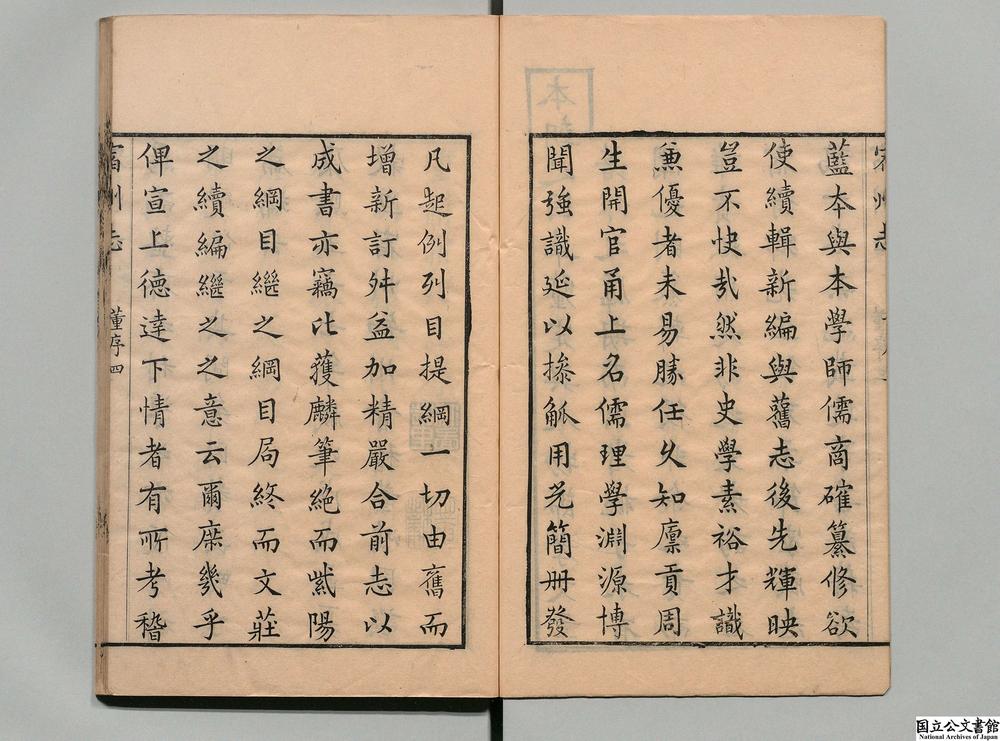 藍本與本學師儒商確纂修欲
使續輯新編與舊志後先輝映
豈不快哉然非史學素裕才識
兼優者未易勝任久知廪貢周
生開官甬上名儒理學淵源博
聞強識延以摻觚用光簡册發
凡起例列目提綱一切由舊而
增新訂舛益加精嚴合前志以
成書亦竊比獲麟筆絶而紫陽
之綱目繼之綱目局終而文莊
之續編繼之之意云爾庶幾乎
俾宣上德達下情者有所考稽
董序 四
国立公文書館
National Archives of Japan